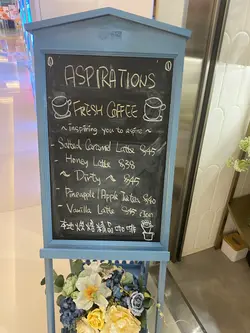 ASPIRATIONS
FRESH COFFEE
~ inspiring you to aspire ~
- Salted Caramel Latte $45
- Honey Latte $38
~ Dirty ~ $45
- Pineapple/Apple Tea $40
- Vanilla Latte $45
本地烘焙精品咖啡